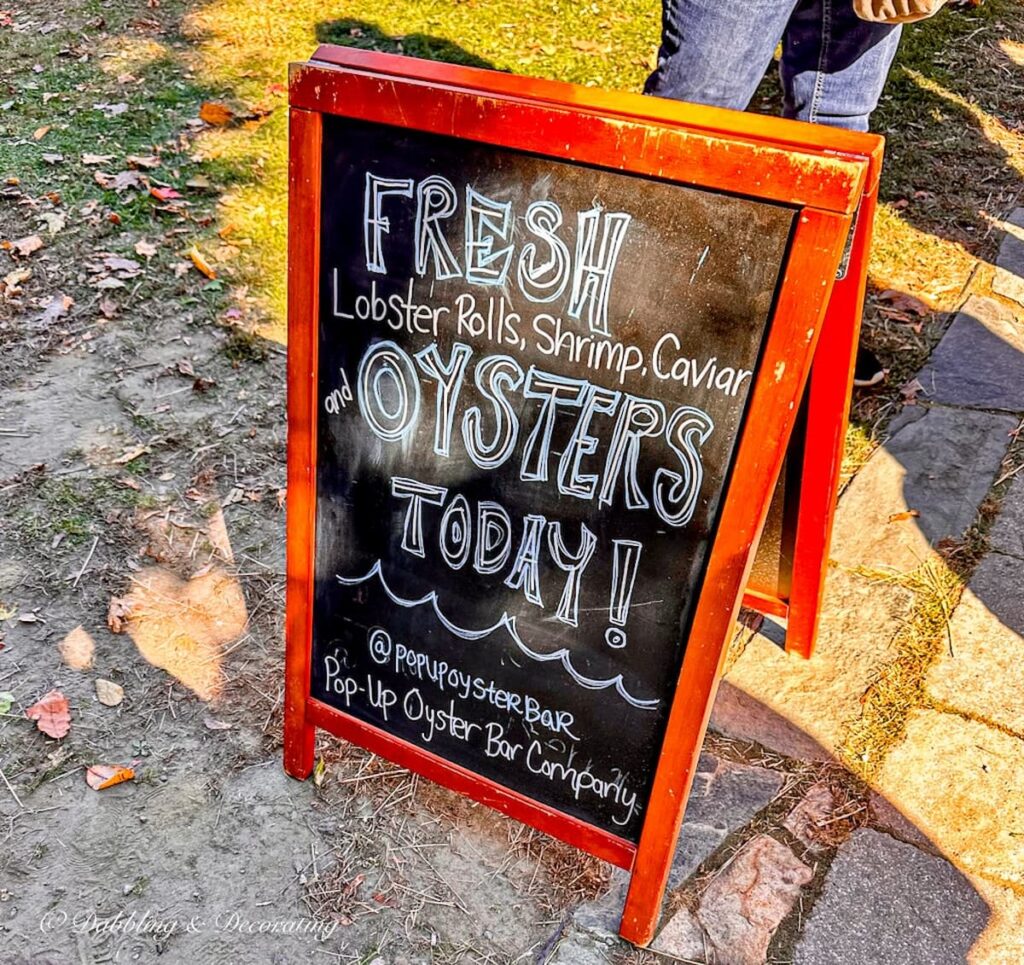 FRESH
Lobster Rolls, Shrimp, Caviar
and OYSTERS
TODAY!
@POPUPOYSTERBAR
Pop-Up Oyster Bar Company
© Dabbling & Decorating